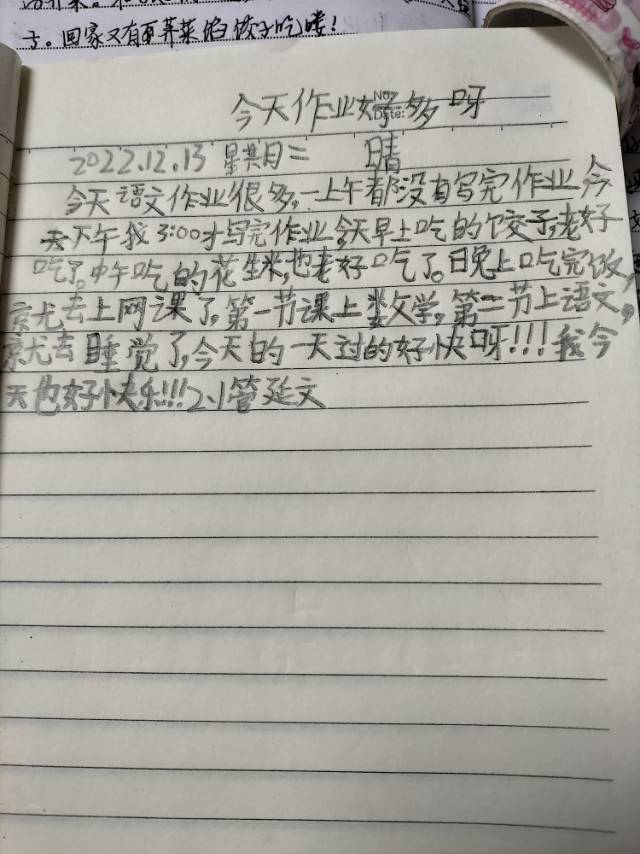 吉。回家又有荠菜馅饺子吃喽!
今天作业好多呀
No.
Date:
2022.12.13 星期二 晴
今天语文作业很多,一上午都没有写完作业,今
天下午我3:00才写完作业,今天早上吃的饺子,老好
吃了。中午吃的花生米,也老好吃了。晚上吃完饭,
就去上网课了,第一节课上数学,第二节上语文,
就去睡觉了,今天的一天过的好快呀!!!我今
天也好快乐!!!2.1管延文